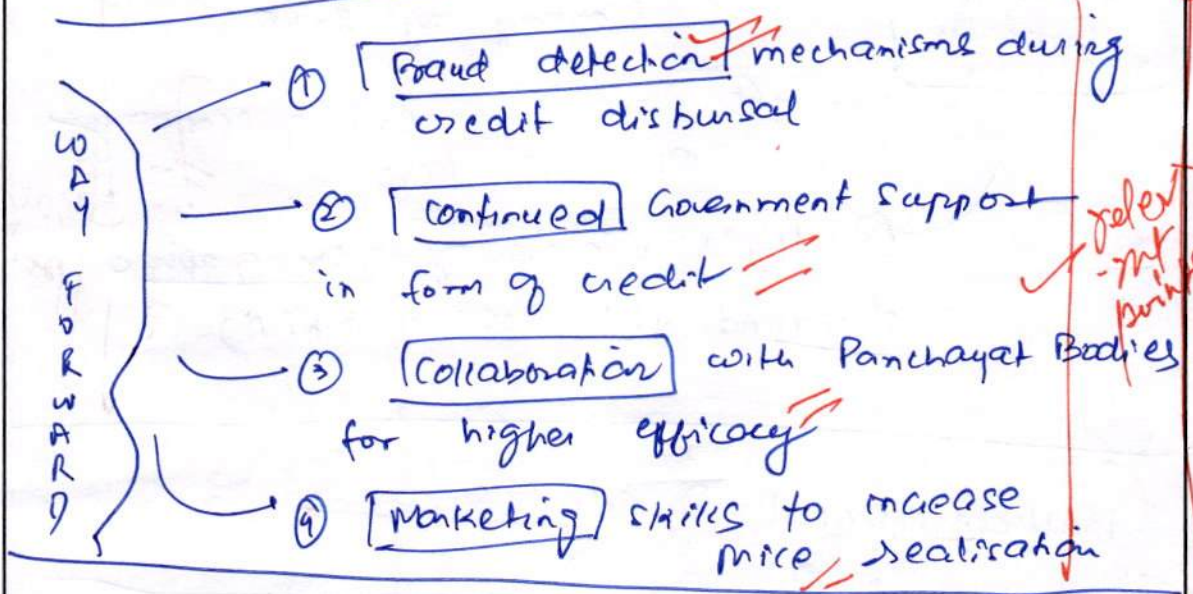 WAY FORWARD
① Fraud detection mechanisms during
credit disbursal
② Continued Government Support
in form of credit
③ Collaboration with Panchayat Bodies
for higher efficacy
④ Marketing skills to increase
price realisation
relev
-nt
point